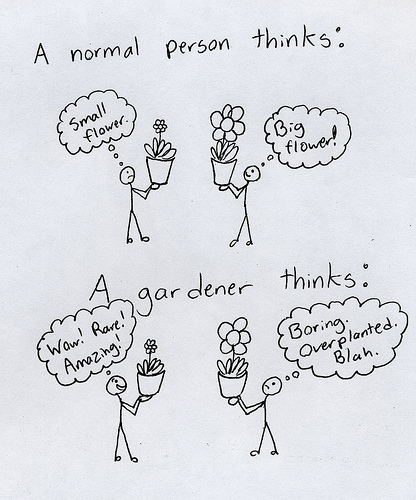 A normal person thinks:
Small
flower.
Big
flower!
A gardener thinks:
Wow! Rare!
Amazing!
Boring.
Overplanted.
Blah.